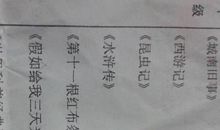 级
《城南旧事》
《西游记》
《昆虫记》
《水浒传》
《第十一根红布条
《假如给我三天